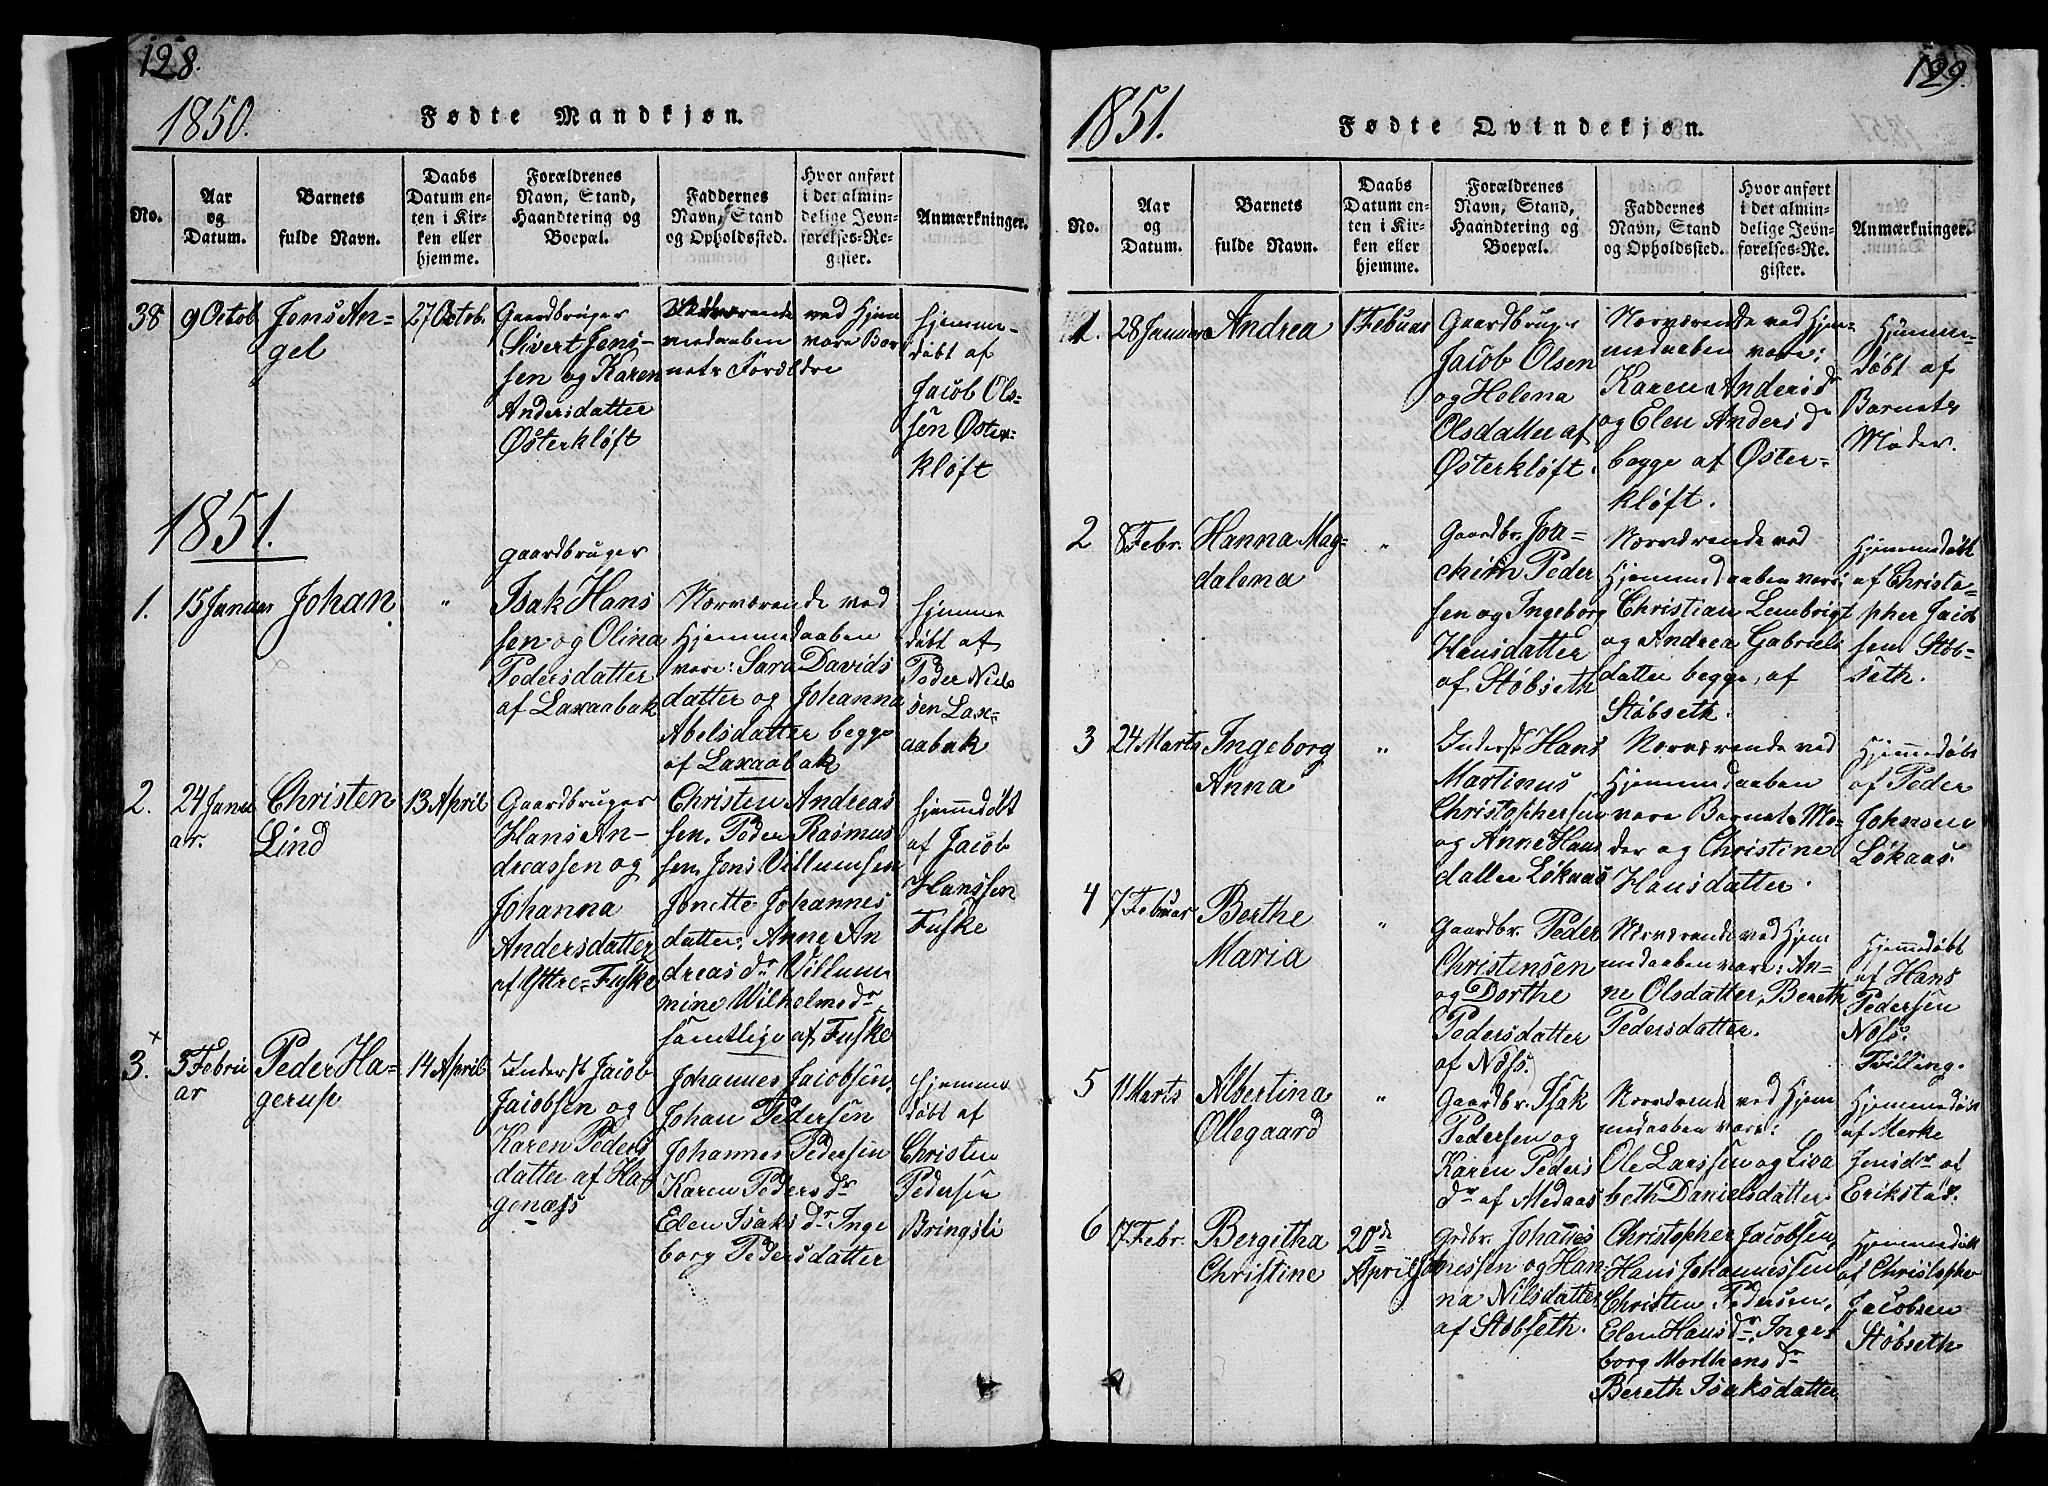 128.
1850.
Fødte Mandkjøn.
No.
Aar
og
Datum.
Barnets
fulde Navn.
Daabs
Datum en-
ten i Kir-
ken eller
hjemme.
Forældrenes
Navn, Stand,
Haandtering og
Boepæl.
Faddernes
Navn, Stand
og Opholdssted.
Hvor anført
i det almin-
delige Jevn-
førelses-Re-
gister.
Anmærkninger.
38
9 Octob
Jens An-
gel
27 Octob.
Gaardbruger
Sivert Jens-
sen og Karen
Andersdatter
Østerkløft
Nærværende ved Hjem
medaaben vare Bar
nets Forældre
Hjemme-
døbt af
Jacob Ols-
sen Øster-
kløft
1851.
1.
15 Januar
Johan
"
Gaardbruger
Isak Hans
sen og Olina
Pedersdatter
af Laxaabak
Nærværende ved
Hjemmedaaben
vare: Sara Davids
datter og Johanna
Abelsdatter begge
af Laxaabak
Hjemme
døbt af
Peder Niels
sen Lax-
aabak
2.
24 Janu
ar.
Christen
Lind
13 April
Gaardbruger
Hans An-
dreassen og
Johanna
Andersdatter
af Yttre-Fuske
Christen Andreas
sen, Peder Rasmus
sen, Jens Villumsen
Jonette Johannes
datter, Anne An
dreas dr Villum
mine Wilhelms dr
samtlige af Fuske
Hjemmedøbt
af Jacob
Hanssen
Fuske
3.
3 Febru
ar
Peder Ha-
gerup
14 April
Inderst Jacob
Jacobsen og
Karen Peders
datter af Ha-
genæss
Johannes Jacobsen,
Johan Pedersen
Johannes Pedersen
Karen Peders dr
Elen Isaks dr Inge
borg Pedersdatter
Hjemme
døbt af
Christen
Pedersen
Bringsli
129.
1851.
Fødte Qvindekjøn.
No.
Aar
og
Datum.
Barnets
fulde Navn.
Daabs
Datum en-
ten i Kir-
ken eller
hjemme.
Forældrenes
Navn, Stand,
Haandtering og
Boepæl.
Faddernes
Navn, Stand
og Opholdssted.
Hvor anført
i det almin-
delige Jevn-
førelses-Re-
gister.
Anmærkninger.
1.
28 Januar
Andrea
1 Febuar
Gaardbruger
Jacob Olsen
og Helena
Olsdatter af
Østerkløft.
Nærværende ved Hjem-
medaaben vare:
Karen Anders dr
og Elen Anders dr
begge af Øster-
kløft.
Hjemme-
døbt af
Barnets
Moder.
2
8 Febr.
Hanna Mag-
dalena
"
Gaardbr. Joa-
chim Peder
sen og Ingeborg
Hansdatter
af Støbseth
Nærværende ved
Hjemmedaaben vare:
Christian Lembrigt
og Andrea Gabriels
datter begge af
Støbseth.
Hjemmedøbt
af Christo-
pher Jacob
sen Støb-
seth.
3
24 Marts
Ingeborg
Anna
"
Inderst Hans
Martinus
Christophersen
og Anne Hans
datter Løkaas
Nærværende ved
Hjemmedaaben
vare Barnets Mo-
der og Christine
Hansdatter.
Hjemmedøbt
af Peder
Johnsen
Løkaas.
4
7 Febuar
Berthe
Maria
"
Gaardbr. Peder
Christensen
og Dorthe
Pedersdatter
af Næss.
Nærværende ved Hjem
medaaben vare: An-
ne Olsdatter, Bereth
Pedersdatter.
Hjemmedøbt
af Hans
Pedersen
Næss.
Tvilling.
5
11 Marts
Albertina
Ollegaard
"
Gaardbr. Isak
Pedersen og
Karen Peders
dr af Medaas
Nærværende ved Hjem
medaaben vare:
Ole Larssen og Lisa
beth Danielsdatter
Hjemmedøbt
af Merke
Jensdr af
Erikstad.
6
17 Febr.
Bergitha
Christine
20de
April
Grdbr. Johan̄es
Johnessen og Han-
na Nilsdatter
af Støbseth.
Christopher Jacobsen,
Hans Johannessen
Christen Pedersen,
Elen Hans dr, Inge
borg Morthens dr
Bereth Isaksdatter
Hjemmedøbt
af Christopher
Jacobsen
Støbseth